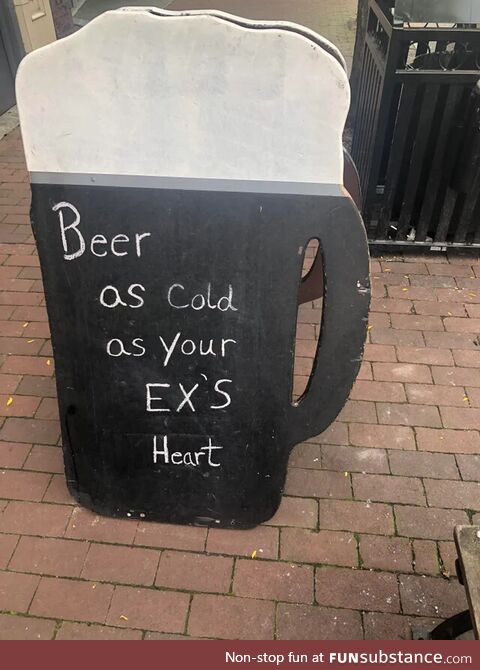 Beer
as Cold
as your
EX'S
Heart
Non-stop fun at FUNsubstance.com